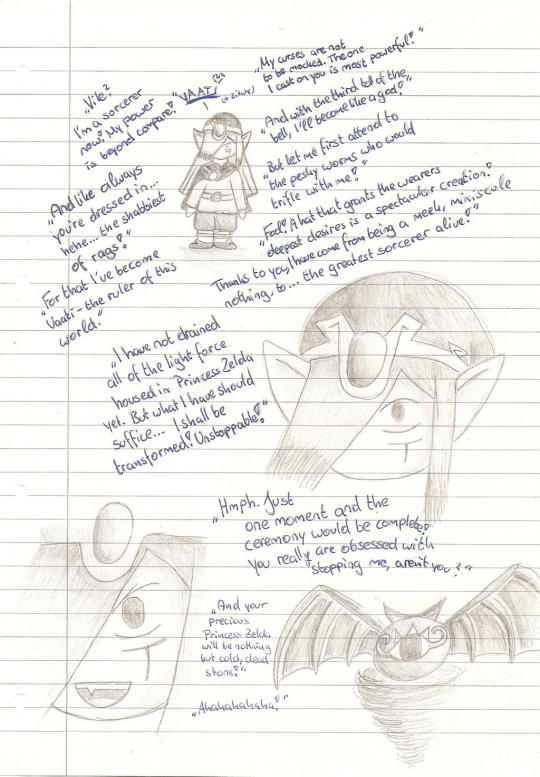 „Vile?
I'm a sorcerer
now! My power
is beyond compare!"
"VAATI"
(+ Zitate)
„My curses are not
to be mocked. The one
I cast on you is most powerful!"
„And with the third toll of the
bell, I'll become like a god!"
„But let me first attend to
the pesky worms who would
trifle with me!"
„Fool! A hat that grants the wearers
deepest desires is a spectacular creation!
Thanks to you, I have come from being a meek, miniscule
nothing, to... the greatest sorcerer alive!"
„And like always
you're dressed in...
hehe... the shabbiest
of rags!"
„For that I've become
Vaati - the ruler of this
world."
„I have not drained
all of the light force
housed in Princess Zelda
yet. But what I have should
suffice... I shall be
transformed! Unstoppable!"
„Hmph. Just
one moment and the
ceremony would be complete!
You really are obsessed with
stopping me, aren't you?"
„And your
precious
Princess Zelda
will be nothing
but cold, dead
stone!"
„Ahahahahaha!"